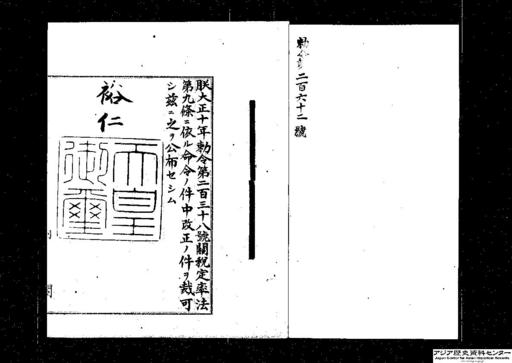 勅令第二百六十二號
朕大正十年勅令第二百三十八號關稅定率法
第九條ニ依ル命令ノ件中改正ノ件ヲ裁可
シ茲ニ之ヲ公布セシム
裕仁
天皇御璽
アジア歴史資料センター
Japan Center for Asian Historical Records